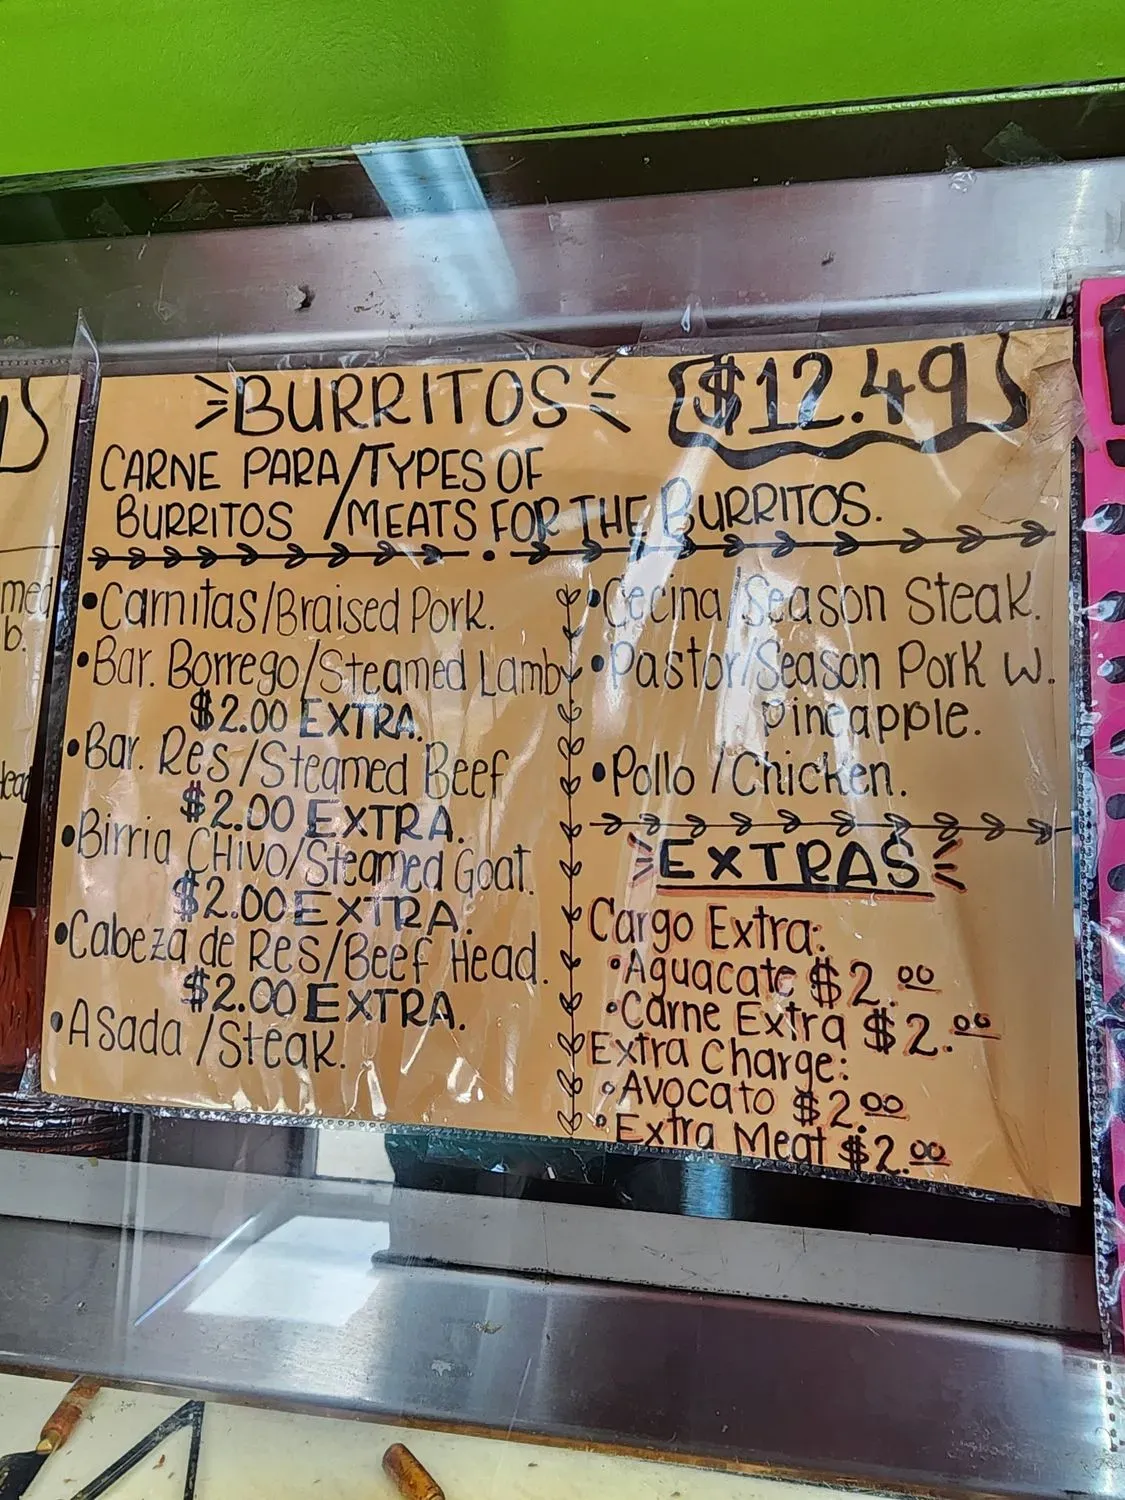 BURRITOS
$12.49
CARNE PARA/TYPES OF
BURRITOS /MEATS FOR THE BURRITOS.
•Carnitas/Braised Pork.
•Bar. Borrego/Steamed Lamb
$2.00 EXTRA.
•Bar. Res/Steamed Beef
$2.00 EXTRA.
•Birria CHivo/Steamed Goat.
$2.00 EXTRA.
•Cabeza de Res/Beef Head.
$2.00 EXTRA.
•Asada/Steak.
•Cecina/Season Steak.
•Pastor/Season Pork w.
pineapple.
•Pollo/Chicken.
EXTRAS
Cargo Extra:
•Aguacate $2.00
•Carne Extra $2.00
Extra Charge:
•Avocato $2.00
•Extra Meat $2.00